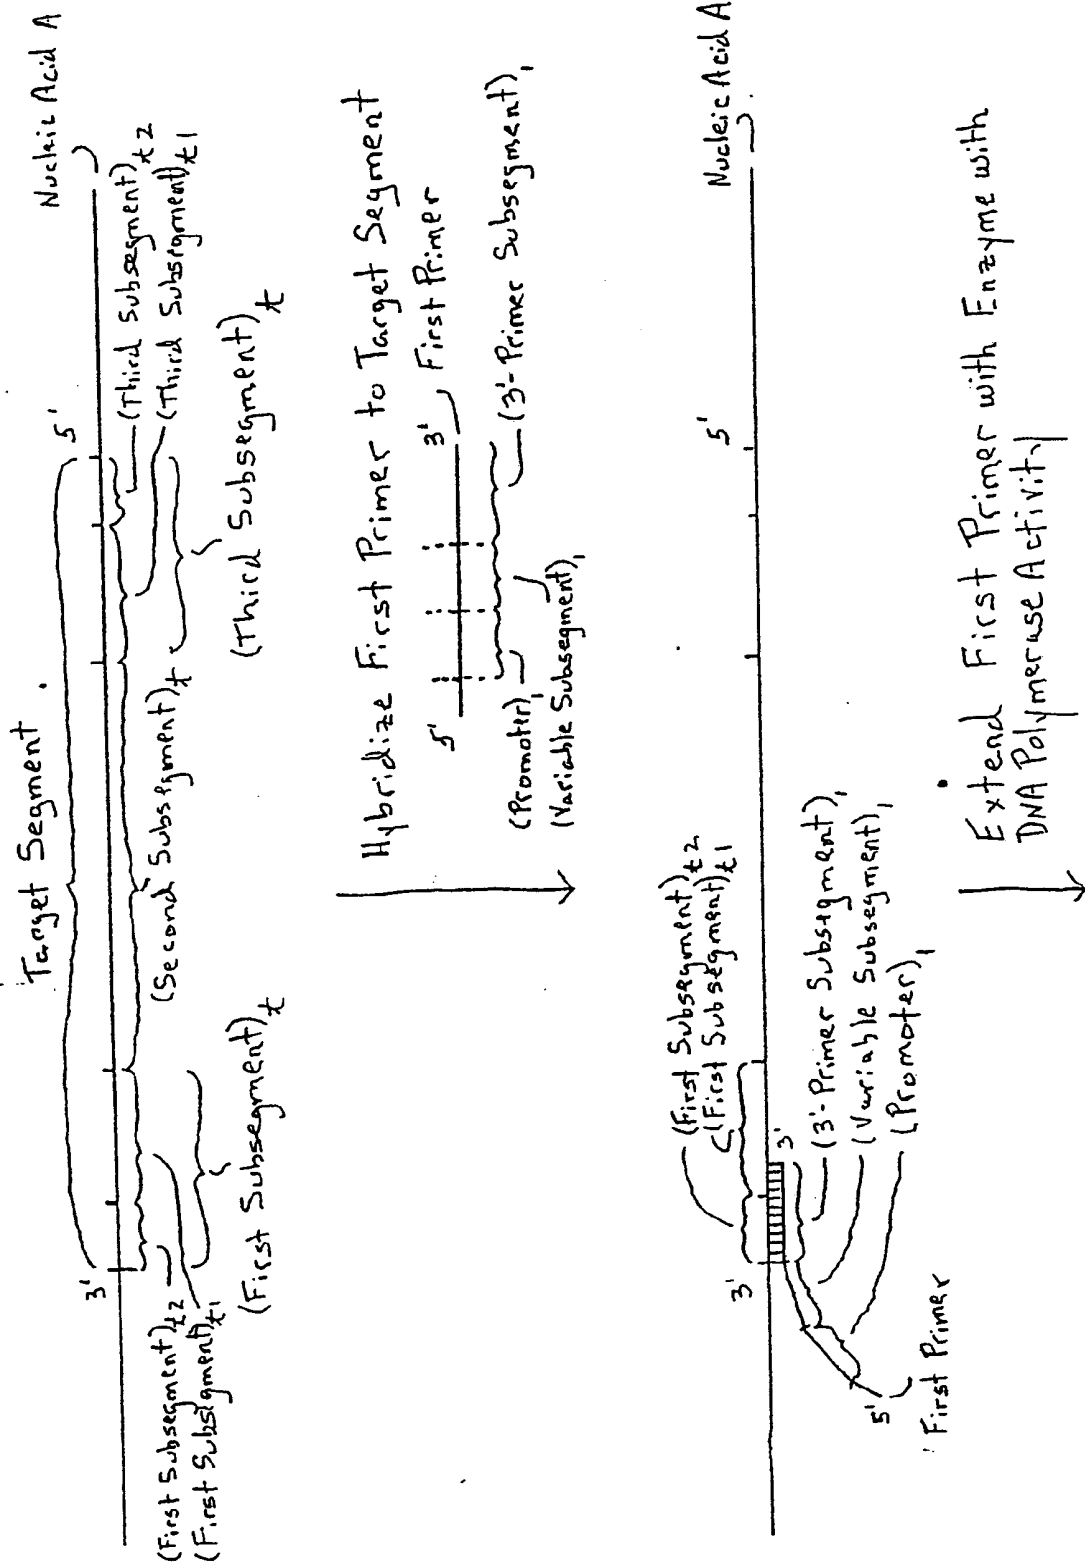 Target Segment
3'
5'
Nucleic Acid A
(Third Subsegment)t2
(Third Subsegment)t1
(Third Subsegment)t
(Second Subsegment)t
(First Subsegment)t2
(First Subsegment)t1
(First Subsegment)t
Hybridize First Primer to Target Segment
5'
3'
First Primer
(Promoter)1
(Variable Subsegment)1
(3'-Primer Subsegment)1
Nucleic Acid A
3'
5'
(First Subsegment)t2
(First Subsegment)t1
3'
(3'-Primer Subsegment)1
(Variable Subsegment)1
(Promoter)1
5'
First Primer
Extend First Primer with Enzyme with
DNA Polymerase Activity